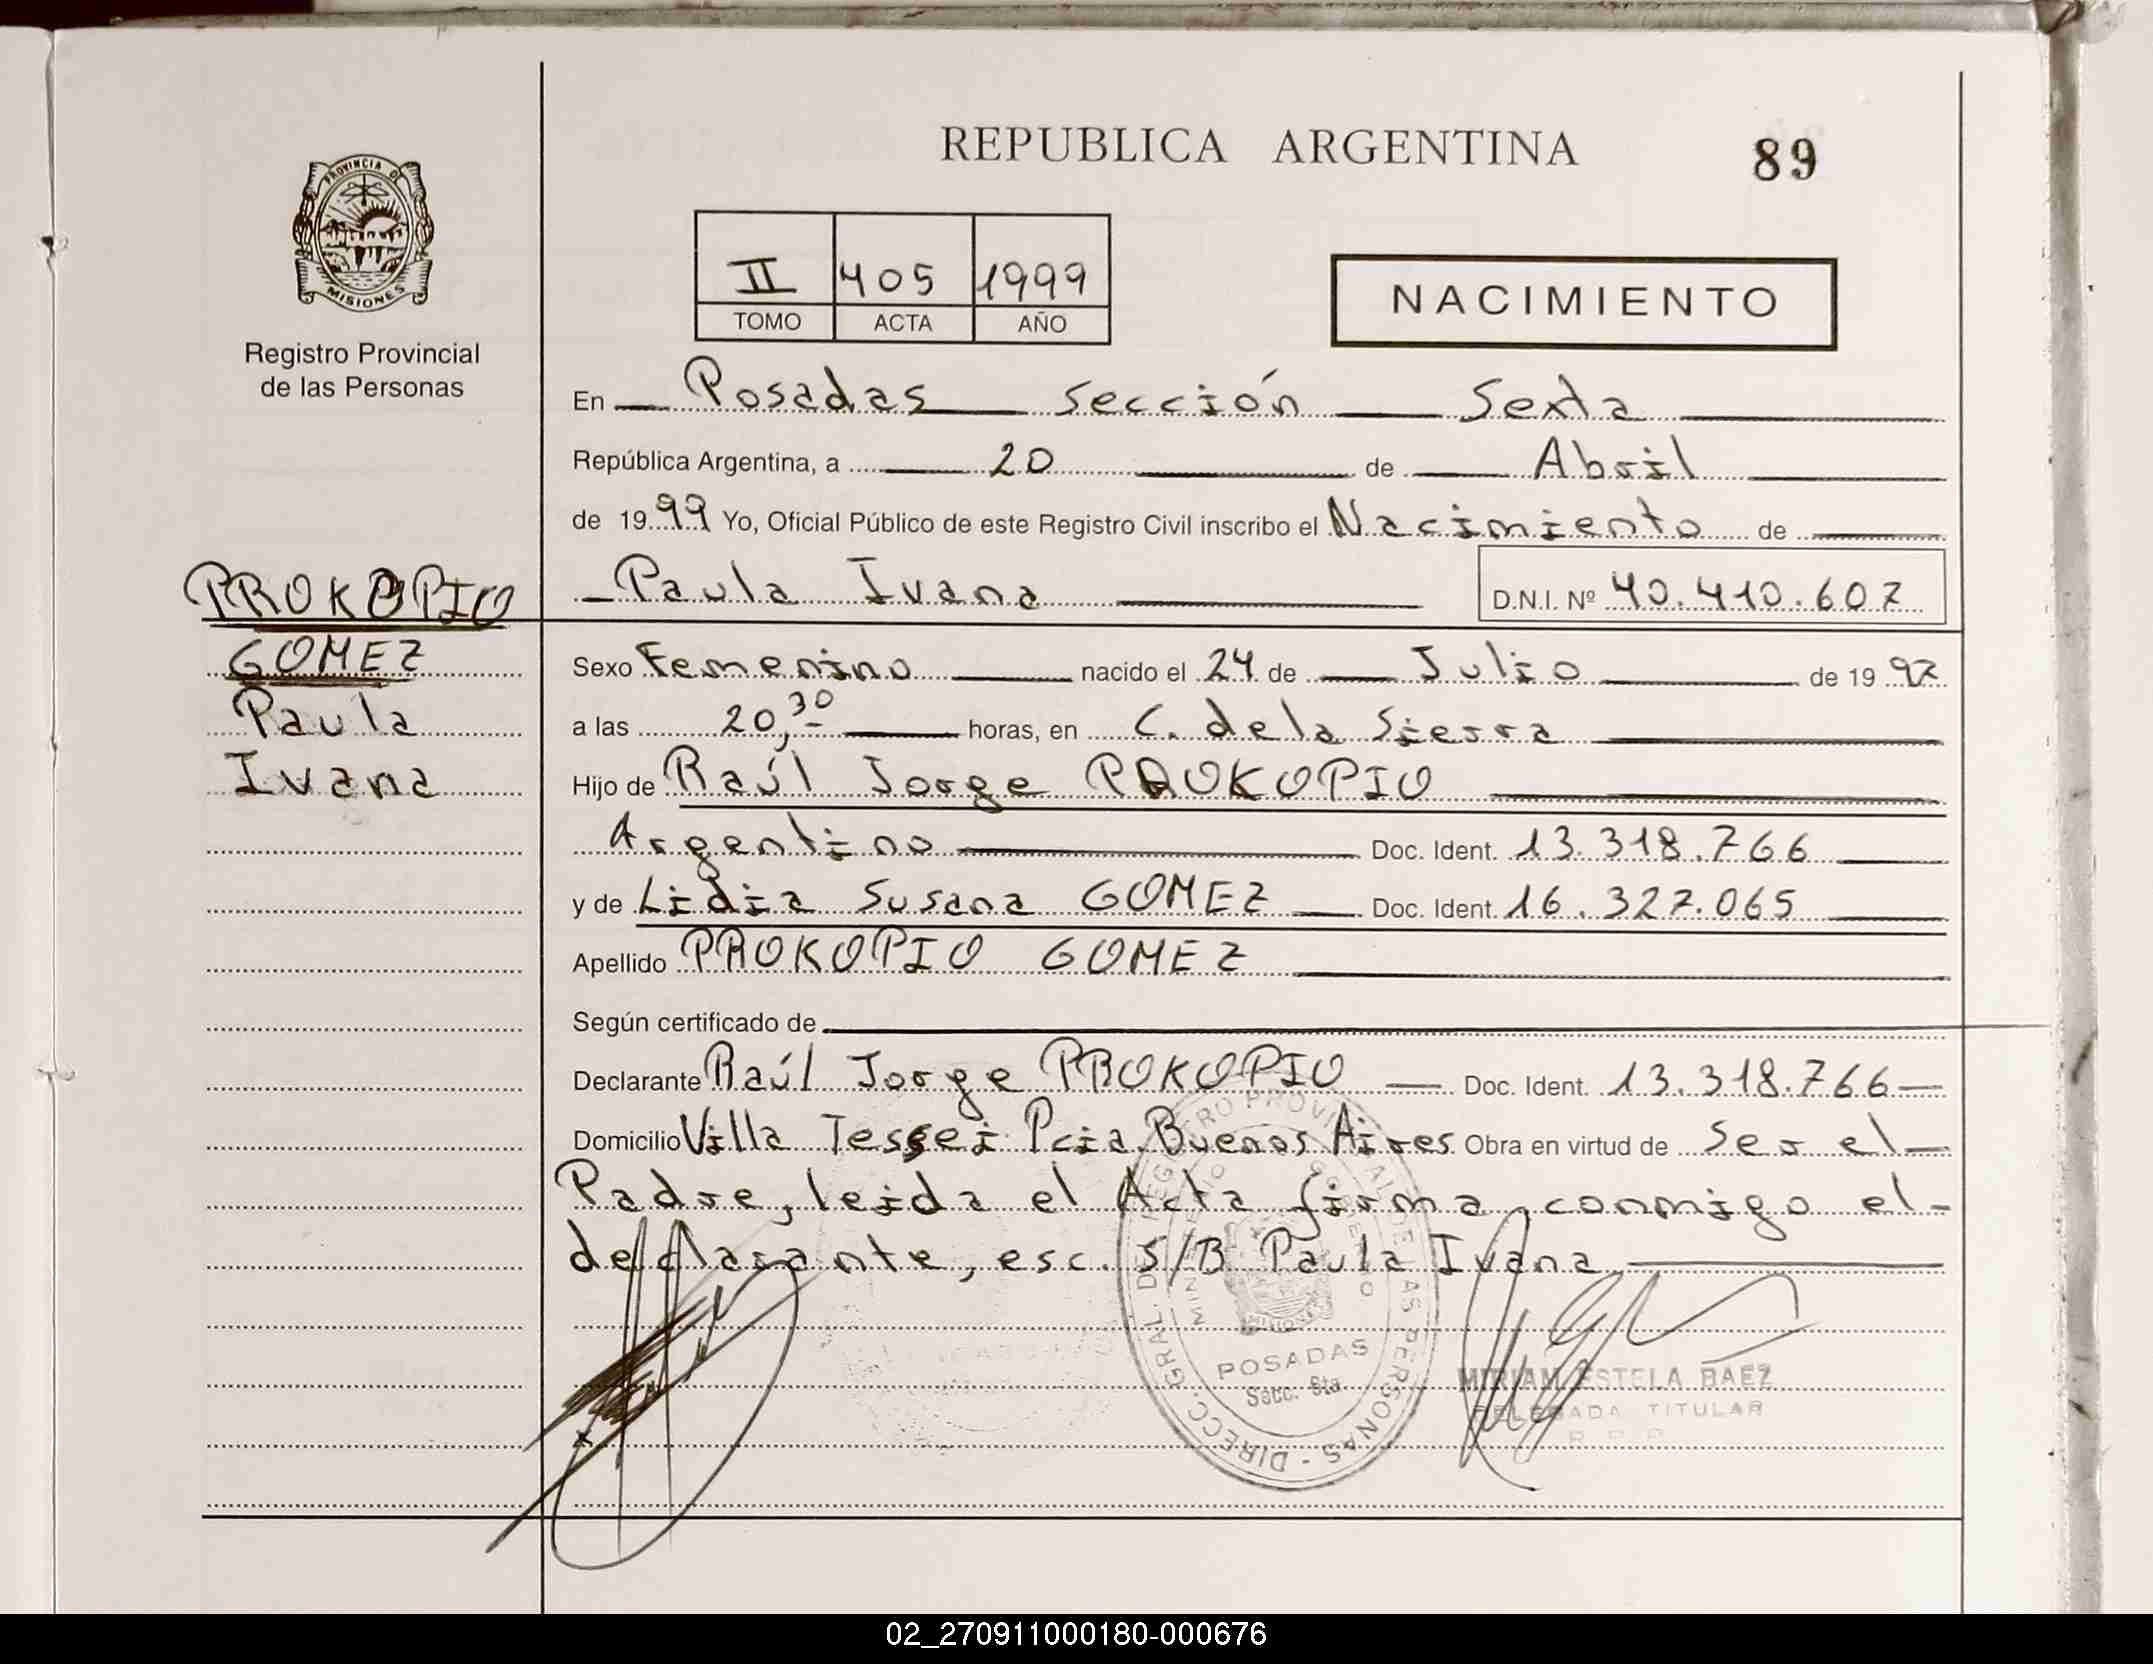 REPUBLICA ARGENTINA
89
PROVINCIA DE
MISIONES
Registro Provincial
de las Personas
II 405 1999
TOMO ACTA AÑO
NACIMIENTO
En Posadas Sección Sexta
República Argentina, a 20 de Abril
de 1999 Yo, Oficial Público de este Registro Civil inscribo el Nacimiento de
Paula Ivana D.N.I. Nº 40.410.607
PROKOPIO
GOMEZ
Paula
Ivana
Sexo Femenino nacido el 24 de Julio de 1997
a las 20,30 horas, en C. de la Sierra
Hijo de Raúl Jorge PROKOPIO
Argentino Doc. Ident. 13.318.766
y de Lidia Susana GOMEZ Doc. Ident. 16.327.065
Apellido PROKOPIO GOMEZ
Según certificado de
Declarante Raúl Jorge PROKOPIO Doc. Ident. 13.318.766
Domicilio Villa Tessei Pcia. Buenos Aires Obra en virtud de Ser el
Padre, leida el Acta firma conmigo el
declarante, esc. S/B Paula Ivana
DIRECC. GRAL. DEL REGISTRO PROVINCIAL DE LAS PERSONAS
MINISTERIO GOBIERNO
MISIONES
POSADAS
Secc. 6ta.
MIRIAM ESTELA BAEZ
DELEGADA TITULAR
R. P. P.
02_270911000180-000676